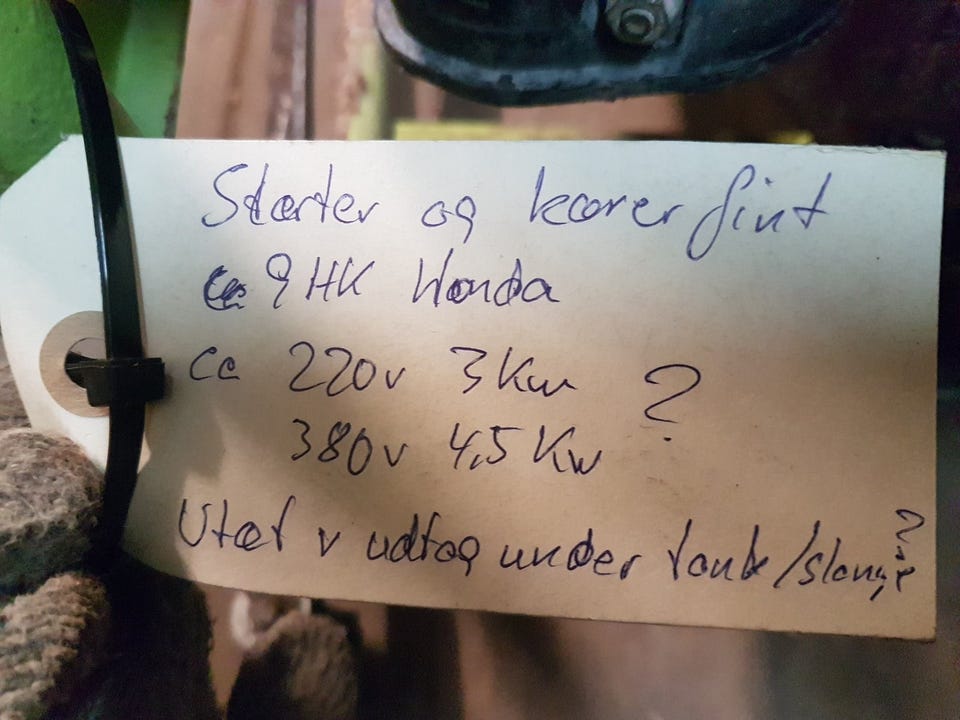 Starter og kører fint
Ca 9 HK Honda
ca 220v 3 Kw ?
380v 4,5 Kw
Utæt v udtag under tank/slange?